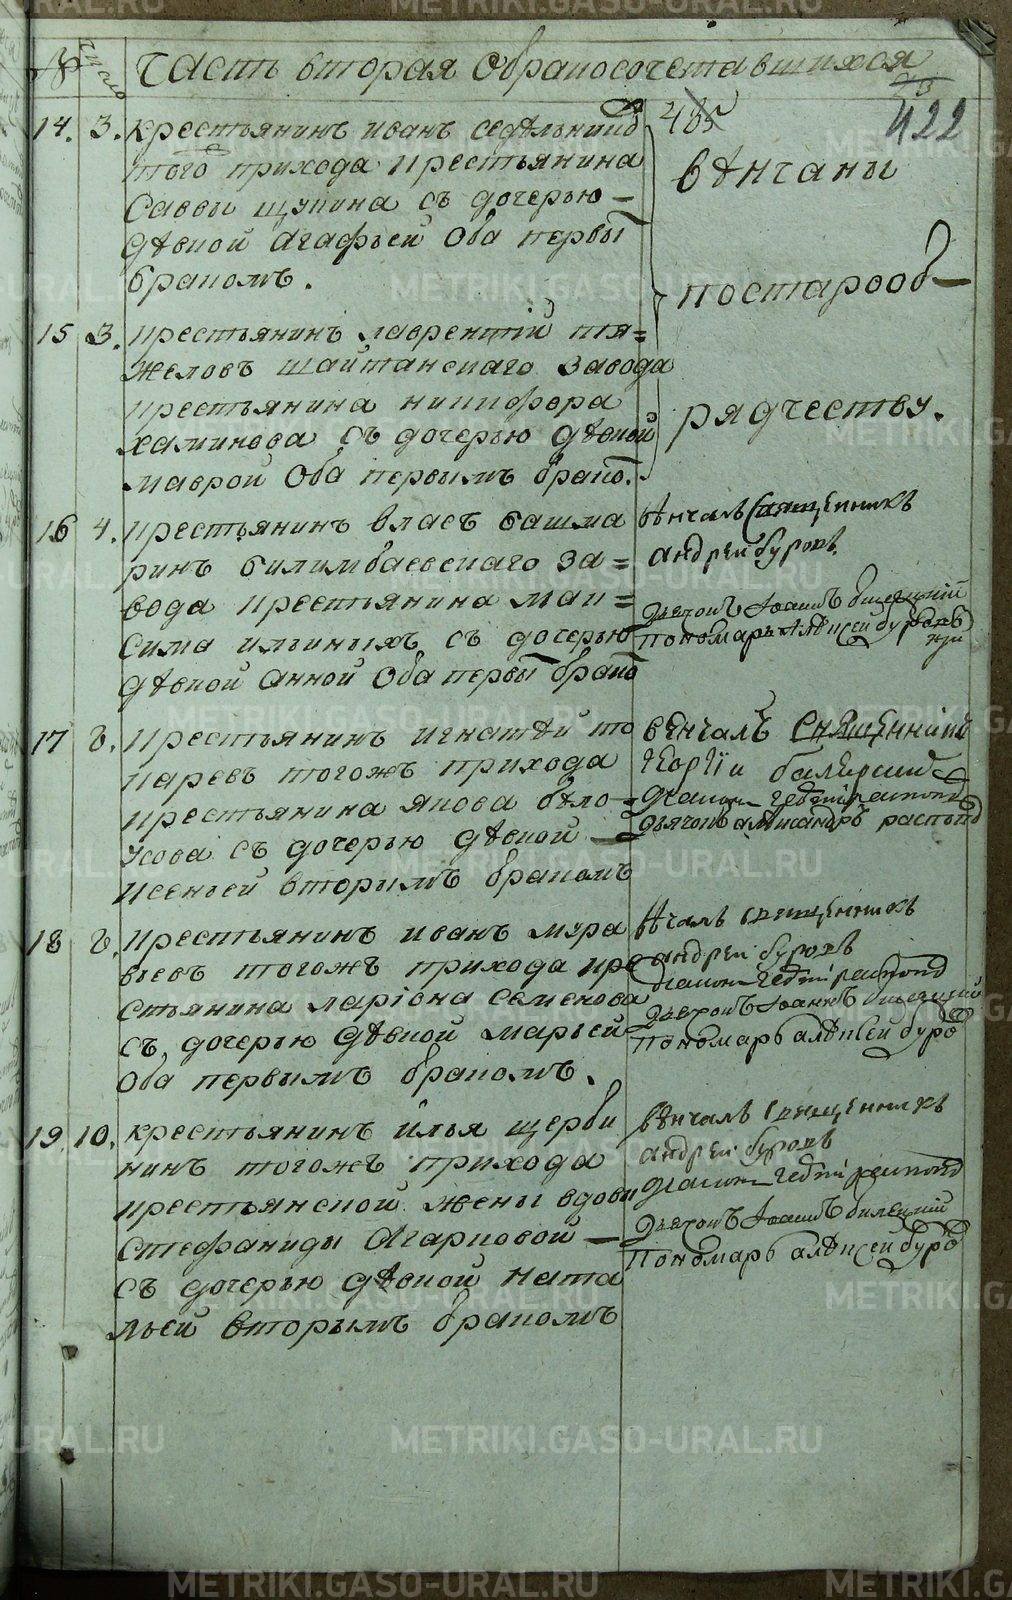 № число Часть вторая обракосочетавшихся
422
14. 3. крестьянинъ иванъ седельник
того прихода крестьянина
Саввы щукина съ дочерью
девкой агафьей оба первы
бракомъ.
венчаны
постарооб-
рядчеству.
15 3. крестьянинъ лаврентий тя=
желовъ шайтанскаго завода
крестьянина никифора
хаминова съ дочерью девкой
маврой оба первымъ брако.
16 4. крестьянинъ власъ башма
ринъ билимбаевскаго за=
вода крестьянина мак=
сима ильиныхъ съ дочерью
девкой анной оба первы брако
венчалъ Священникъ
андрей буровъ
дьячокъ Иоаннъ билецкий
пономарь алексей буровъ
17 8. крестьянинъ игнатей то
каревъ тогожъ прихода
крестьянина якова бело=
усова съ дочерью девкой
ксеньей вторымъ бракомъ
венчалъ Священникъ
Георгии
дьячокъ александръ распоп
18 8. крестьянинъ иванъ мура
вьевъ тогожъ прихода кре
стьянина ларiона семенова
съ дочерью девкой марьей
оба первымъ бракомъ.
вѣчалъ священникъ
андреи буровъ
дьячокъ Иоаннъ билецкий
пономарь алексей буро
19. 10. крестьянинъ илья щерби
нинъ тогожъ прихода
крестьянской жены вдовы
стефаниды агарковой
съ дочерью девкой ната
льей вторымъ бракомъ
венчалъ священникъ
андреи буровъ
дьячокъ Иоаннъ билецкий
пономарь алексей буро
METRIKI.GASO-URAL.RU